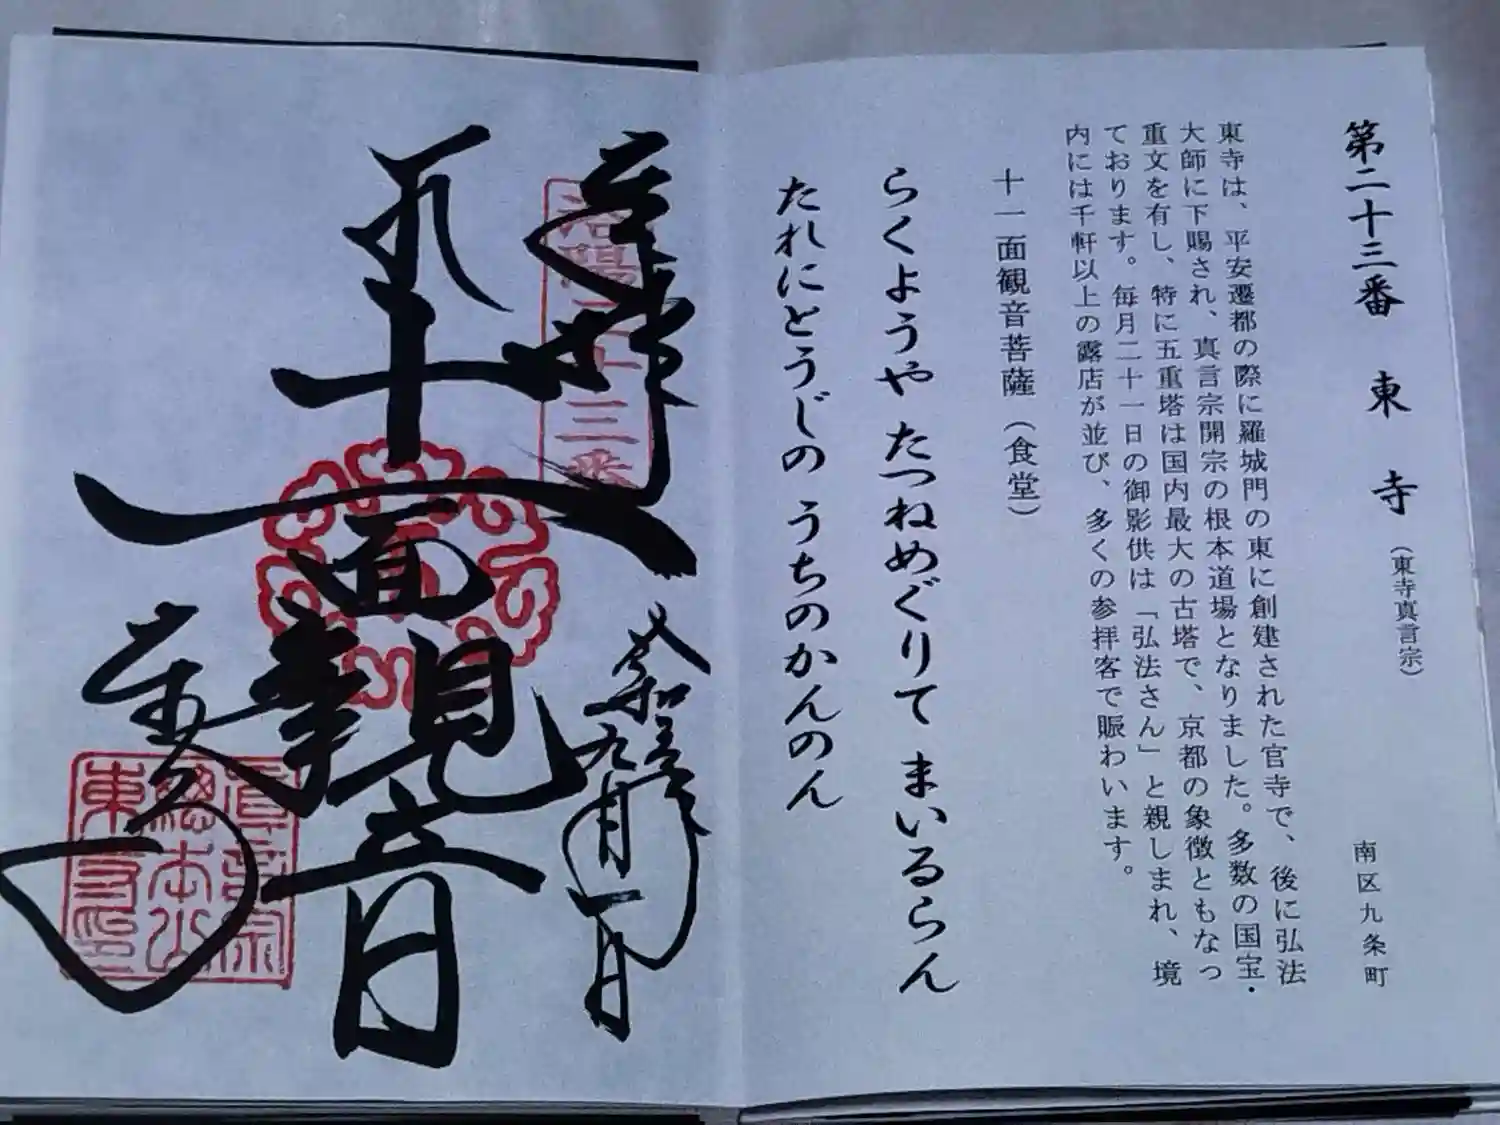 第二十三番 東寺 (東寺真言宗) 南区九条町
東寺は、平安遷都の際に羅城門の東に創建された官寺で、後に弘法
大師に下賜され、真言宗開宗の根本道場となりました。多数の国宝・
重文を有し、特に五重塔は国内最大の古塔で、京都の象徴ともなっ
ております。毎月二十一日の御影供は「弘法さん」と親しまれ、境
内には千軒以上の露店が並び、多くの参拝客で賑わいます。
十一面観音菩薩(食堂)
らくようや たつねめぐりて まいるらん
たれにとうじの うちのかんのん
奉拝
洛陽二十三番
九月一日
十一面観音
真言宗
総本山
東寺印